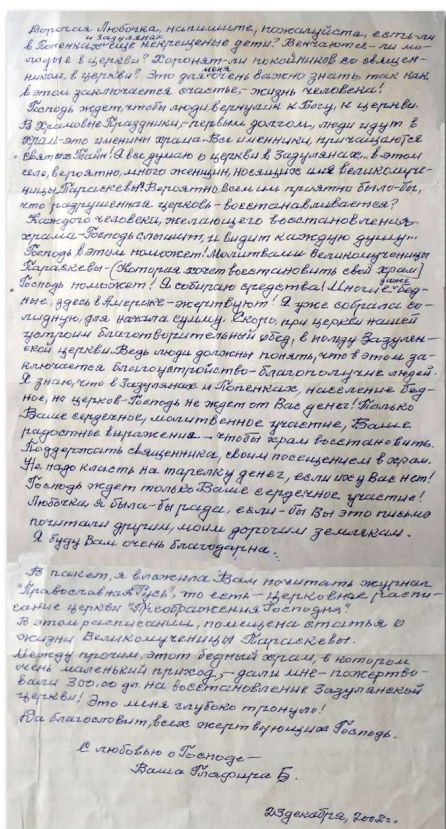 Дорогая Любочка, напишите, пожалуйста, есть-ли
в Попенках и Задулянах еще некрещеные дети? Венчаются-ли мо-
лодые в церкви? Хоронят-ли покойников со священ-
ником, в церкви? Это для меня очень важно знать, так как
в этом заключается счастье,- жизнь человека!
Господь ждет, чтобы люди вернулик к Богу, к церкви.
В Храмовые Праздники,- первым долгом, люди идут в
храм-это именины храма. Все именинники, причащаются
святых Тайн! Я все думаю о церкви в Задулянах, в этом
селе, вероятно, много женщин, носящих имя великомуче-
ницы Параскевы! Вероятно всем им приятно было-бы,
что разрушенная церковь-восстанавливается?
Каждого человека, желающего восстановления
храма-Господь слышит, и видит каждую душу...
Господь в этом поможет! Молитвами Великомученицы
Параскевы-(Которая хочет восстановить свой храм)
Господь поможет! Я собираю средства! Многие даже бед-
ные, здесь в Америке-жертвуют! Я уже собрала со-
лидную, для начала сумму. Скоро, при церкви нашей
устроим благотворительный обед, в пользу Задулян-
ской церкви. Ведь люди должны понять, что в этом за-
ключается благоустройство-благополучие людей.
Я знаю, что в Задулянах и Попенках, население бед-
ное, но церков-Господь не ждет от Вас денег! Только
Ваше сердечное, молитвенное участие, Ваше
радостное выражение-чтобы храм восстановить.
Поддержать священника, своим посещением в храм.
Не надо класть на тарелку денег, если их у Вас нет!
Господь ждет только Ваше сердечное участие!
Любочка, я была-бы рада, если-бы Вы это письмо
почитали другим, моим дорогим землякам.
Я буду Вам очень благодарна.
В пакет, я вложила Вам почитать журнал
"Православная Русь", то есть-церковное распи-
сание церкви "Преображения Господня".
В этом расписании, помещена статья о
жизни Великомученицы Параскевы.
Между прочим, этот бедный храм, в котором
очень маленький приход,-дали мне-пожертво-
вали 300.00 дл. на восстановление Задулянской
церкви! Это меня глубоко тронуло!
Да благословит, всех жертвующих Господь.
С любовью о Господе-
Ваша Глафира Б.
23 декабря, 2002 г.